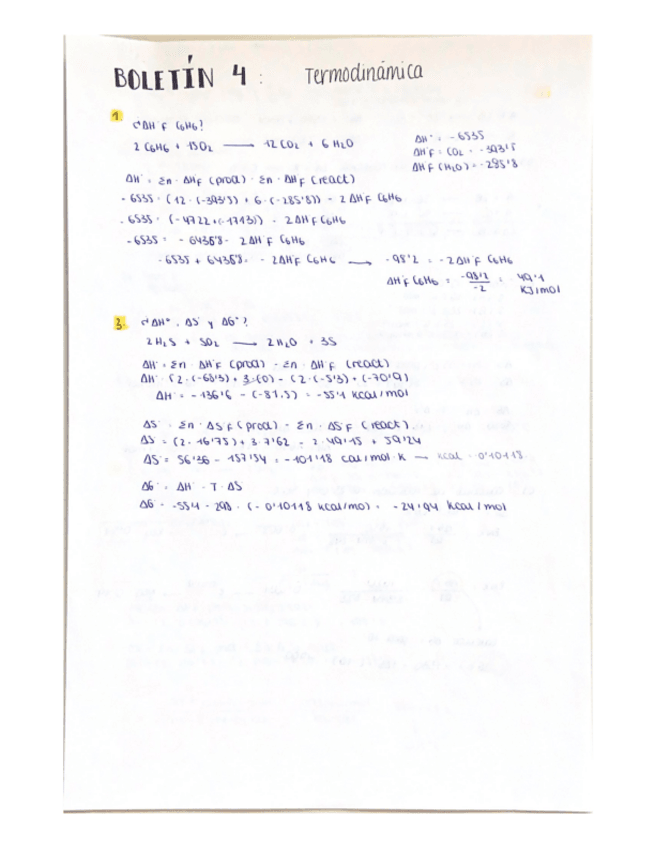 BOLETÍN 4 : Termodinámica
1.
¿ΔH°F C6H6?
2 C6H6 + 15O2 ⟶ 12 CO2 + 6 H2O
ΔH° = -6535
ΔH°F = CO2 = -393'5
ΔH°F (H2O) = -285'8
ΔH° = Σn · ΔHF (prod) - Σn · ΔHF (react)
-6535 = (12 · (-393'5) + 6 · (-285'8)) - 2 ΔH°F C6H6
-6535 = (-4722 + (-1713)) - 2 ΔH°F C6H6
-6535 = -6436'8 - 2 ΔH°F C6H6
-6535 + 6436'8 = -2 ΔH°F C6H6 ⟶ -98'2 = -2 ΔH°F C6H6
ΔH°F C6H6 = -98'2 / -2 = 49'1 KJ/mol
3. ¿ΔH°, ΔS° y ΔG°?
2 H2S + SO2 ⟶ 2 H2O + 3S
ΔH° = Σn · ΔH°F (prod) - Σn · ΔH°F (react)
ΔH° = (2 · (-68'3) + 3 · (0) - (2 · (-5'3) + (-70'9)
ΔH° = -136'6 - (-81,5) = -55'1 kcal/mol
ΔS° = Σn · ΔS°F (prod) - Σn · ΔS°F (react).
ΔS° = (2 · 16'75) + 3 · 7'62 - 2 · 49'15 + 59'24
ΔS° = 56'36 - 157'54 = -101'18 cal/mol·K ⟶ kcal = -0'10118
ΔG° = ΔH° - T · ΔS
ΔG° = -55'1 - 298 · (-0'10118 kcal/mol) = -24'94 kcal/mol